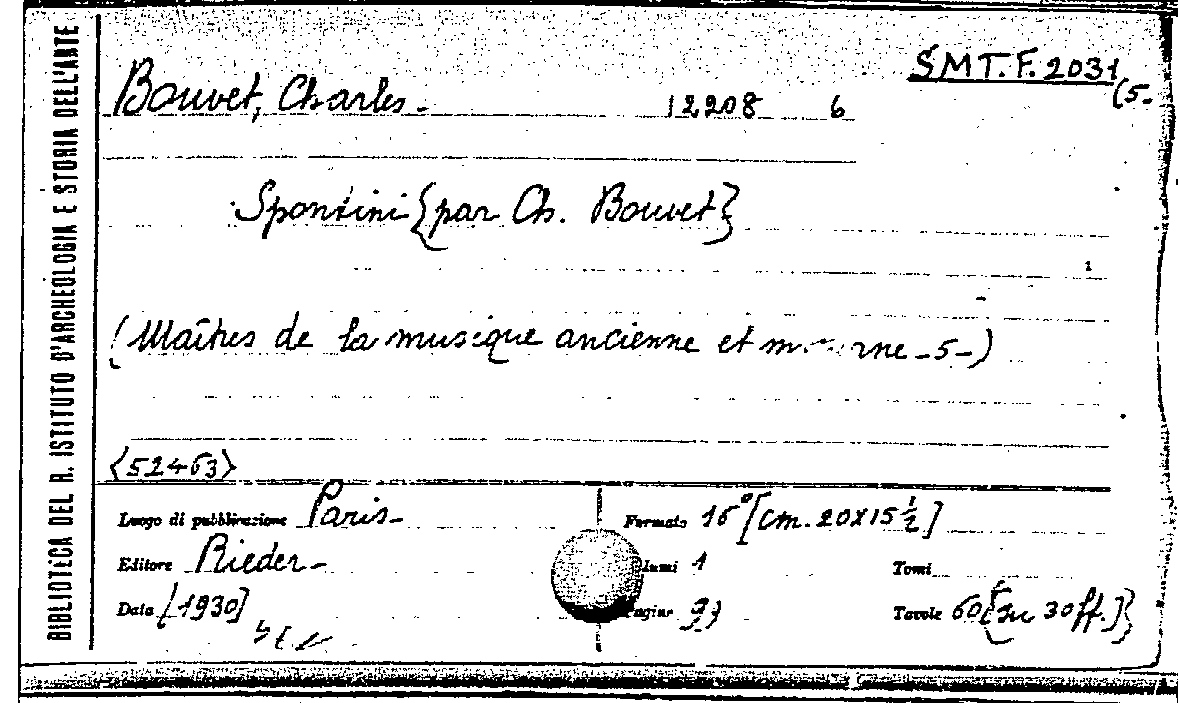 BIBLIOTECA DEL R. ISTITUTO D'ARCHEOLOGIA E STORIA DELL'ARTE
SMT.F.2031
(5-
Bouvet, Charles- 12208 6
Spontini {par Ch. Bouvet}
1
(Maîtres de la musique ancienne et -5-)
<52463>
Luogo di pubblicazione Paris-
Formato 16° [cm. 20x15 ½]
Editore Rieder-
1
Tomi
Data [1930]
Tavole 60 {[su 30 ff.]}